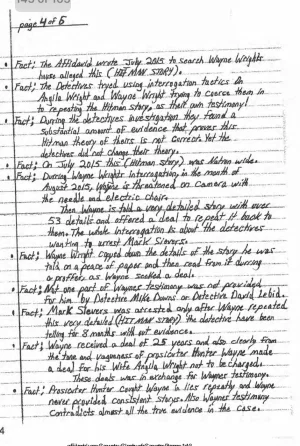 page 4 of 5
• Fact; The Affidavid wrote July 2015 to search Wayne Wrights
house alleged this (HIT MAN STORY).
• Fact; The Detectives tryed using interrogation tactics on
Angila Wright and Wayne Wright trying to coerse them in
to repeating the Hitman story, as their own testimony!
• Fact; During the detectives investigation they found a
substantial amount of evidence that proves this
Hitman theory of theirs is not currect. Yet the
detectives did not change their theory.
• Fact; On July 2015 this (Hitman story) was Nation wide.
• Fact; During Wayne Wrights Interrogation, in the month of
August 2015, Wayne is threatoned on camera with
the needle and electric chair.
Then Wayne is told a very detailed story with over
53 details and offered a deal to repeat it back to
them. The whole Interrogation is about the detectives
wanting to arrest Mark Sievers.
• Fact; Wayne Wright copyed down the details of the story he was
told on a peace of paper and then read from it durring
a proffer, as Wayne seeked a deal.
• Fact; Not one part of Waynes testimony was not provided
for him by Detective Mike Downs or Detective David Lebid.
• Fact; Mark Sievers was arrested only after Wayne repeated
this very detailed (HIT MAN STORY) the detective have been
telling for 8 months with out evidence.
• Fact; Wayne received a deal of 25 years and also clearly from
the tone and vagueness of prosicutor Hunter Wayne made
a deal for his Wife Angila Wright not to be charged.
These deals was in exchange for Waynes testimony.
• Fact; Prosicutor Hunter caught Wayne in lies repeatly and Wayne
never provided consistant storys. Also Waynes testimony
Contradicts almost all the true evidence in the case.
4